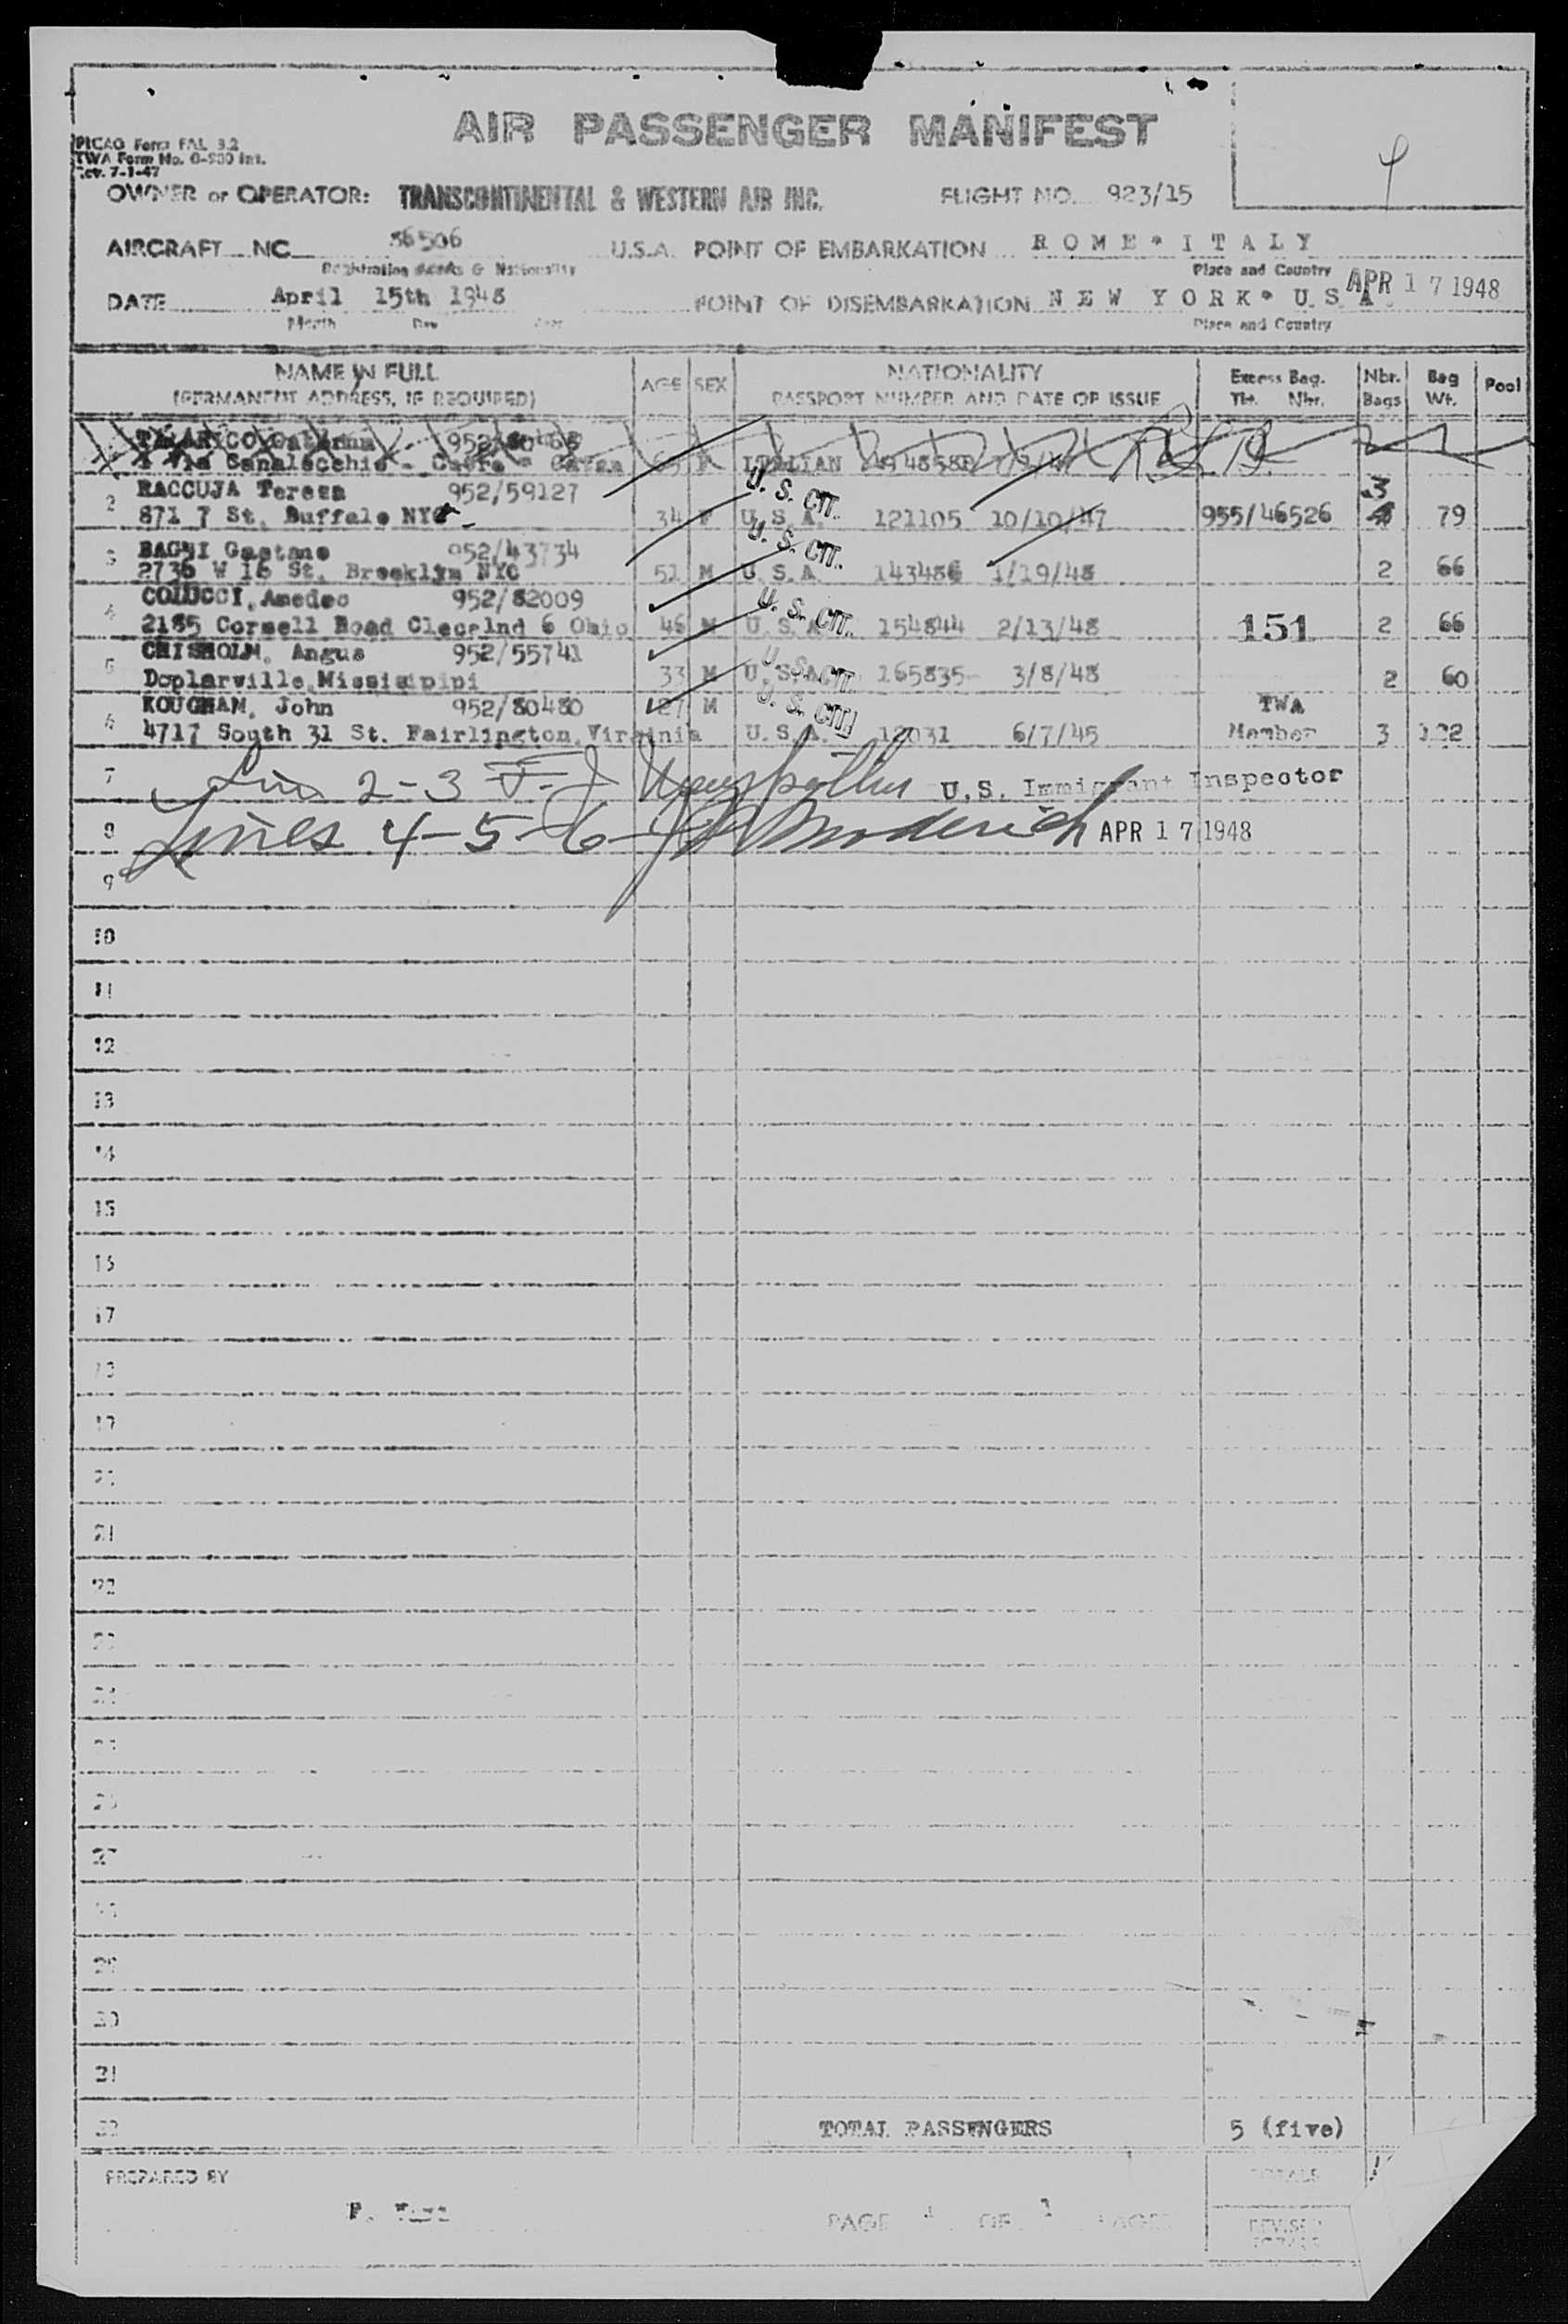 AIR PASSENGER MANIFEST
PICAO Form FAL 3.2
TWA Form No. O-900 Int.
Rev. 7-1-47
OWNER or OPERATOR: TRANSCONTINENTAL & WESTERN AIR INC. FLIGHT NO. 923/15
AIRCRAFT NC 86506 U.S.A. POINT OF EMBARKATION ROME * ITALY
Registration Marks & Nationality Place and Country
DATE April 15th 1948 POINT OF DISEMBARKATION NEW YORK * U.S.A. APR 17 1948
Month Day Year Place and Country
NAME IN FULL AGE SEX NATIONALITY Excess Bag. Nbr. Bag Pool
(PERMANENT ADDRESS, IF REQUIRED) PASSPORT NUMBER AND DATE OF ISSUE Tkt. Nbr. Bags Wt.
TALARICO
Via 65 F ITALIAN
RACCUJA Teresa 952/59127 U. S. CIT. 3
2 871 7 St. Buffalo NYC 34 F U.S.A. 121105 10/10/47 955/46526 79
3 BAGNI Gaetano 952/43734 U. S. CIT.
2736 W 16 St. Brooklyn NYC 51 M U.S.A. 143486 1/19/48 2 66
COLUCCI, Amedeo 952/82009 U. S. CIT.
4 2185 Cornell Road Clecelnd 6 Ohio 46 M U.S.A. 154844 2/13/48 151 2 66
CHISHOLM, Angus 952/55741 U. S. CIT.
5 Doplarville, Missisipipi 33 M U.S.A. 165835 3/8/48 2 60
KOUGHAM, John 952/80480 27 M U. S. CIT. TWA
6 4717 South 31 St. Fairlington, Virginia U.S.A. 12031 6/7/45 Member 3 122
7 2-3 U.S. Immigrant Inspector
8 Lines 4-5-6- APR 17 1948
9
10
11
12
13
14
15
16
17
18
19
20
21
22
23
24
25
26
27
28
29
30
31
32 TOTAL PASSENGERS 5 (five)
PREPARED BY TOTALS
PAGE 1 OF 1 PAGES REVISED
TOTALS